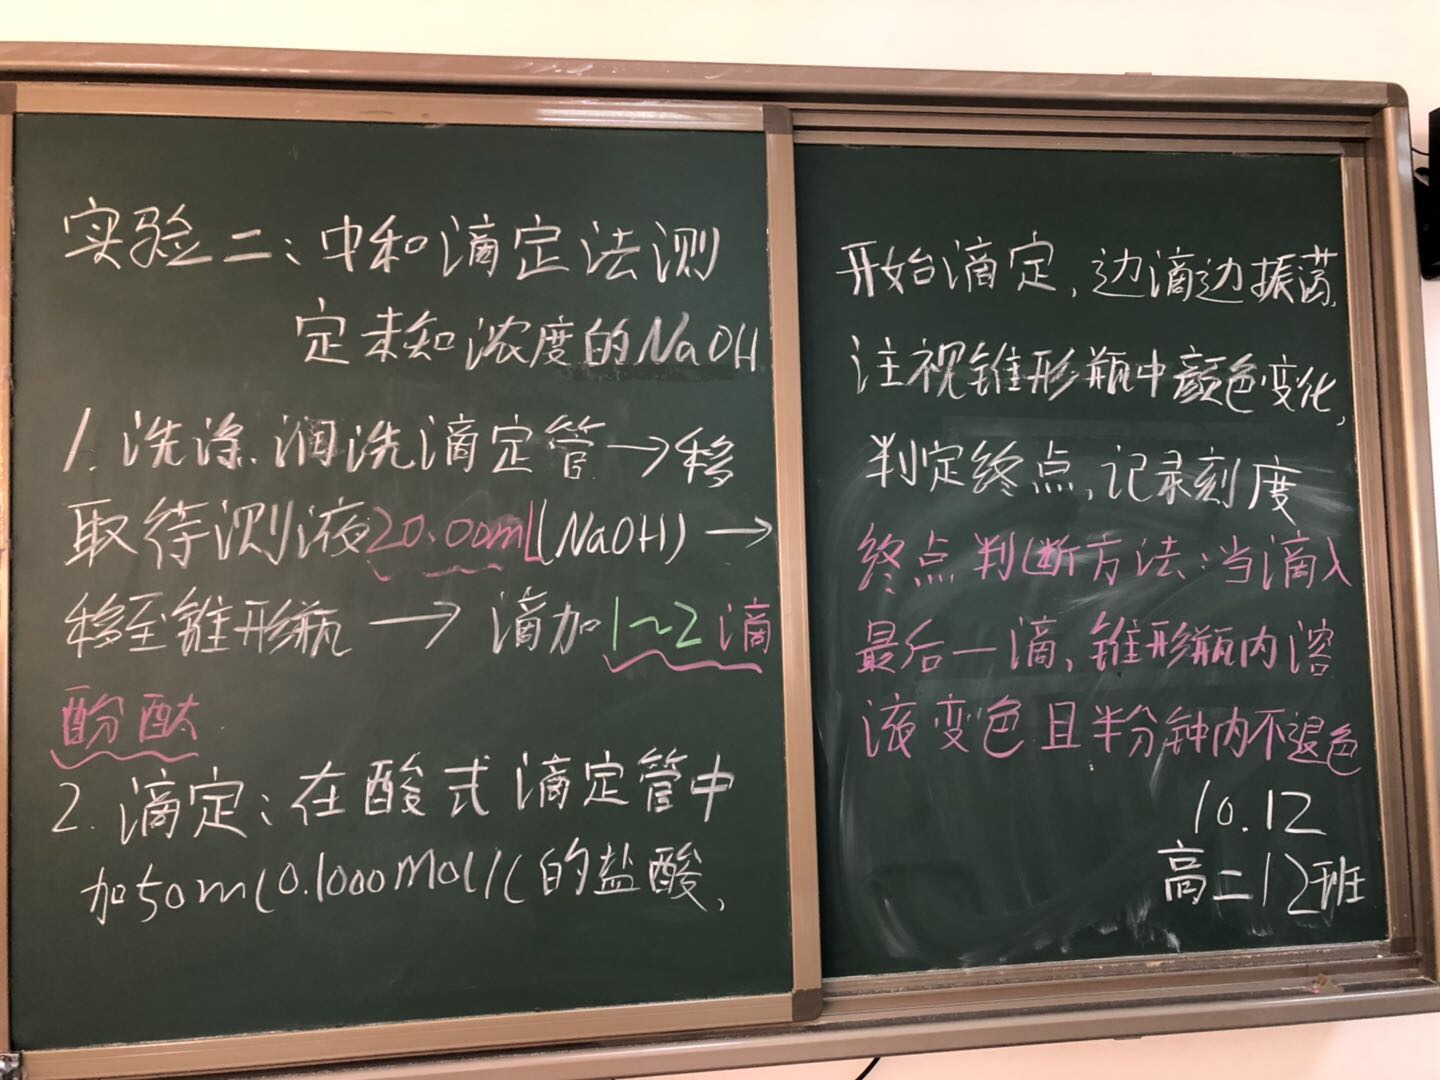 实验二：中和滴定法测
定未知浓度的NaOH
1.洗涤.润洗滴定管→移
取待测液20.00ml(NaOH)→
移至锥形瓶→滴加1~2滴
酚酞
2.滴定：在酸式滴定管中
加50ml0.1000mol/L的盐酸，
开始滴定，边滴边振荡，
注视锥形瓶中颜色变化，
判定终点，记录刻度
终点判断方法：当滴入
最后一滴，锥形瓶内溶
液变色且半分钟内不退色
10.12
高二12班